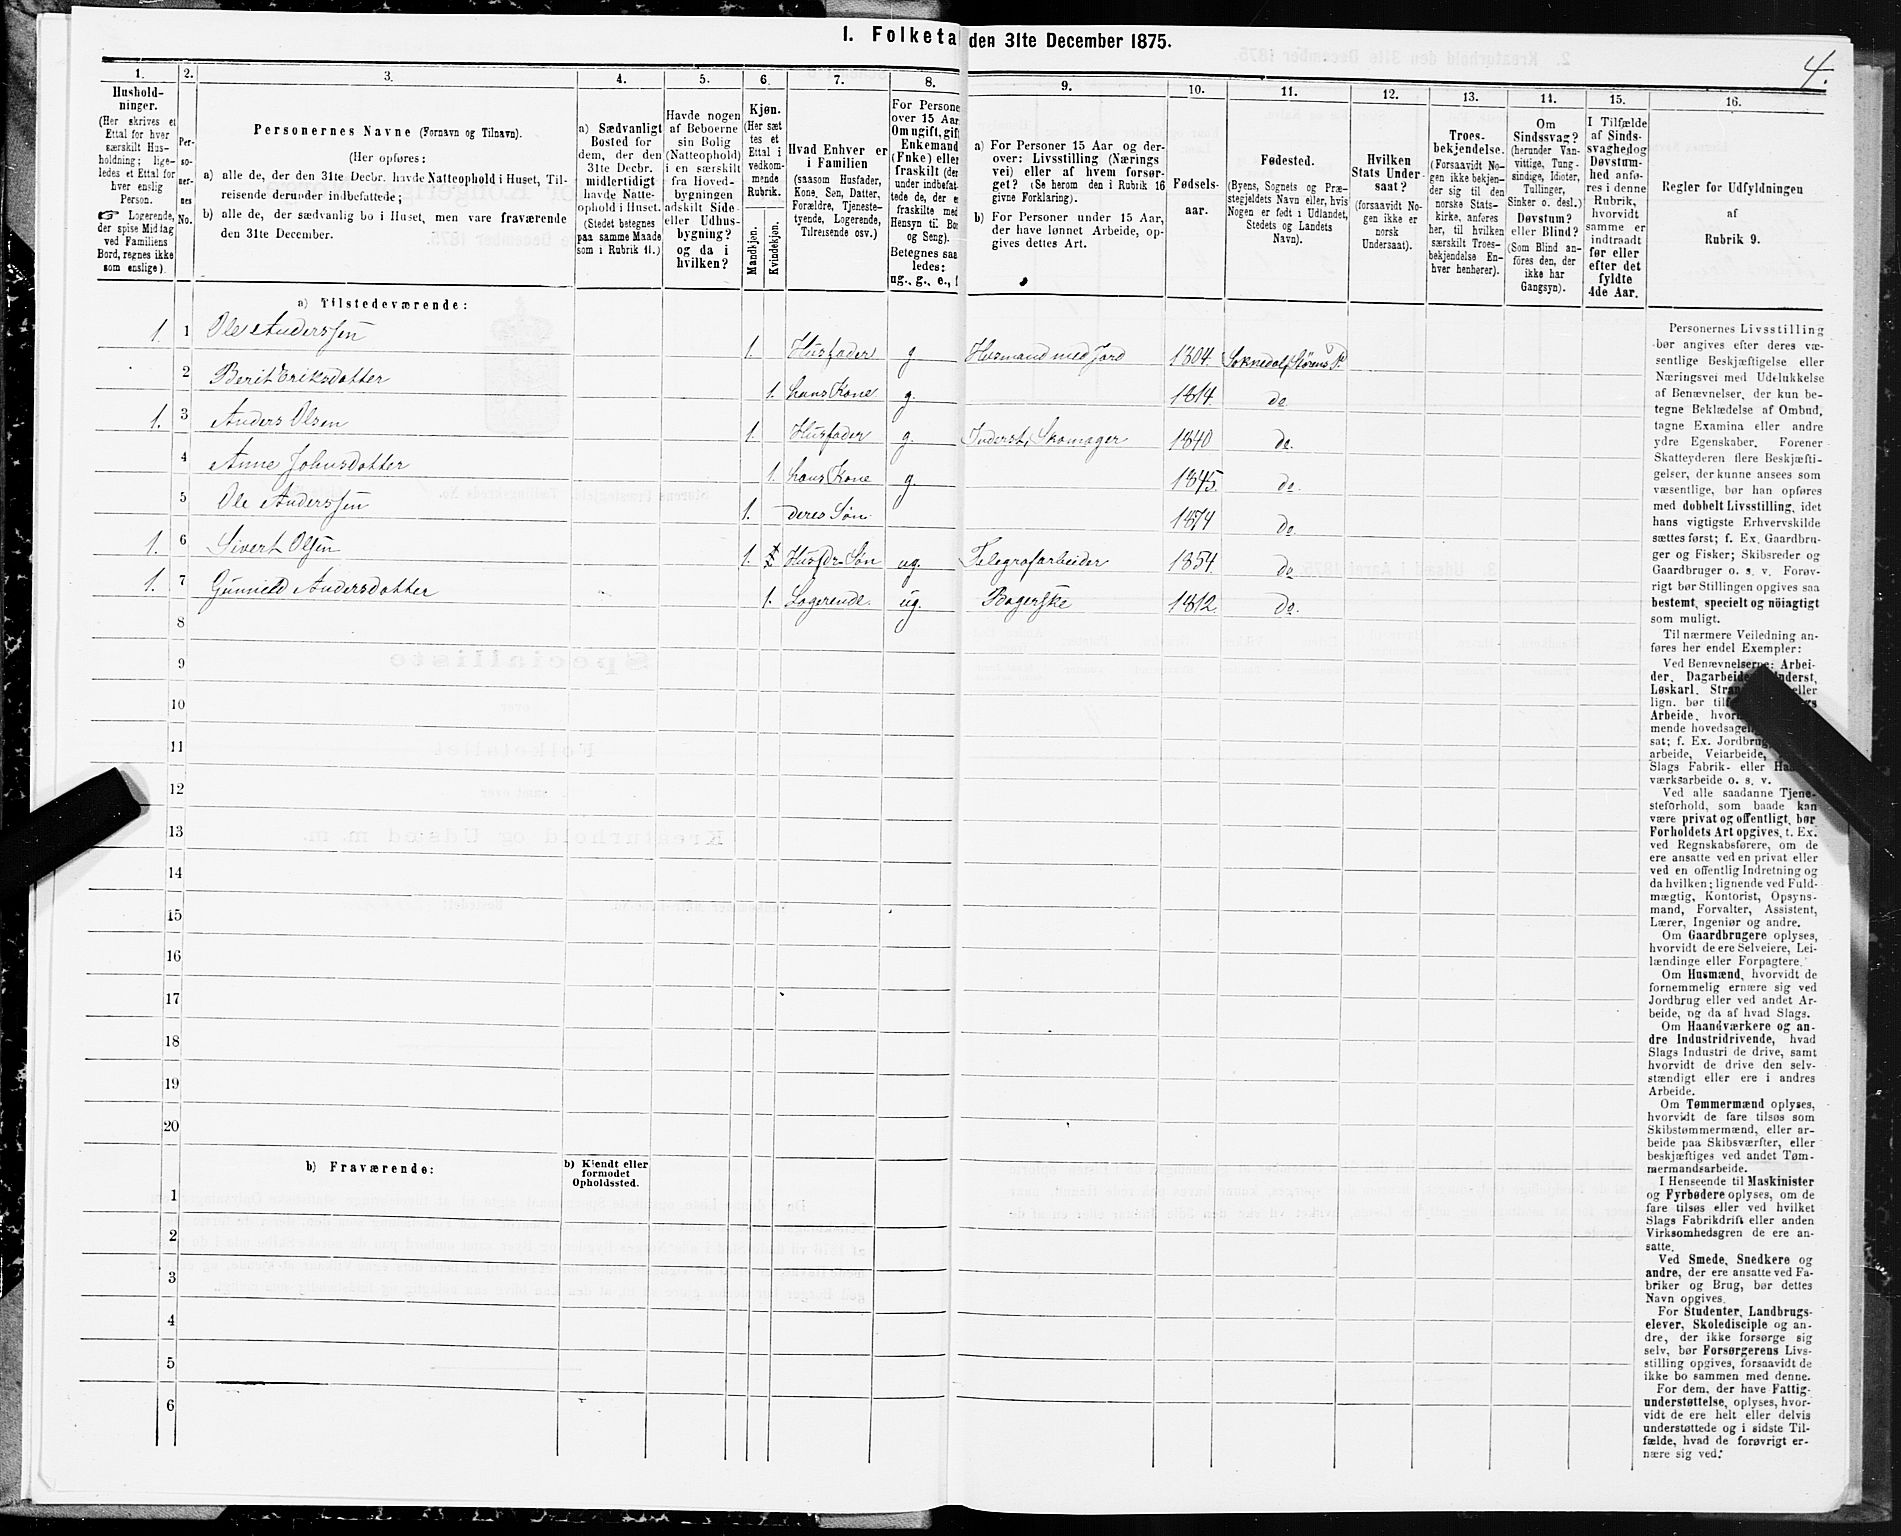 1. Folketa den 31te December 1875.
4.
1.
Hushold-
ninger.
(Her skrives et
Ettal for hver
særskilt Hus-
holdning; lige-
ledes et Ettal for
hver enslig
Person.
☞ Logerende,
der spise Middag
ved Familiens
Bord, regnes ikke
som enslige).
2.
Per-
so-
ner-
nes
No.
3.
Personernes Navne (Fornavn og Tilnavn).
(Her opføres:
a) alle de, der den 31te Decbr. havde Natteophold i Huset, Til-
reisende derunder indbefattede;
b) alle de, der sædvanlig bo i Huset, men vare fraværende
den 31te December.
4.
a) Sædvanligt
Bosted for
dem, der den
31te Decbr.
midlertidigt
havde Natte-
ophold i Huset.
(Stedet betegnes
paa samme Maade
som i Rubrik 11.)
5.
Havde nogen
af Beboerne
sin Bolig
(Natteophold)
i en særskilt
fra Hoved-
bygningen
adskilt Side-
eller Udhus-
bygning?
og da i
hvilken?
6.
Kjøn.
(Her sæt-
tes et
Ettal i
vedkom-
mende
Rubrik.
Mandkjøn.
Kvindekjøn.
7.
Hvad Enhver er
i Familien
(saasom Husfader,
Kone, Søn, Datter,
Forældre, Tjeneste-
tyende, Logerende,
Tilreisende osv.)
8.
For Persone
over 15 Aar
Om ugift, gift
Enkemand
(Enke) eller
fraskilt (der
under indbefat-
tede de, der e
fraskilte med
Hensyn til Bo
og Seng).
Betegnes saa
ledes:
ug., g., e., f
9.
a) For Personer 15 Aar og der-
over: Livsstilling (Nærings
vei) eller af hvem forsør-
get? (Se herom den i Rubrik 16
givne Forklaring).
b) For Personer under 15 Aar,
der have lønnet Arbeide, op-
gives dettes Art.
10.
Fødsels-
aar.
11.
Fødested.
(Byens, Sognets og Præ-
stegjeldets Navn eller, hvis
Nogen er født i Udlandet,
Stedets og Landets
Navn).
12.
Hvilken
Stats Under-
saat?
(forsaavidt No-
gen ikke er
norsk
Undersaat).
13.
Troes-
bekjendelse.
(Forsaavidt No-
gen ikke bekjen-
der sig til den
norske Stats-
kirke, anføres
her, til hvilken
særskilt Troes-
bekjendelse En-
hver henhører).
14.
Om
Sindssvag?
(herunder Van-
vittige, Tung-
sindige, Idioter,
Tullinger,
Sinker o. desl.)
Døvstum?
eller Blind?
(Som Blind an-
føres den, der
ikke har
Gangsyn).
15.
I Tilfælde
af Sinds-
svaghed og
Døvstum-
hed anfø-
res i denne
Rubrik,
hvorvidt
samme er
indtraadt
før eller
efter det
fyldte
4de Aar.
16.
Regler for Udfyldningen
af
Rubrik 9.
a) Tilstedeværende:
1. 1 Ole Anderssen 1. Husfader g Husmand med Jord 1804. Soknedal, Størens P.
2 Berit Eriksdatter 1. hans Kone g. 1814 do
1. 3 Anders Olsen 1. Husfader g. Inderst, Skomager 1840 do.
4 Anne Johnsdatter 1. hans Kone g. 1845. do.
5 Ole Anderssen 1. deres Søn 1874 do
1. 6 Sivert Olsen 1. Husfdr. Søn ug. Telegrafarbeider 1854. do
1. 7 Gunnild Andersdatter 1. Logerende. ug. Bagerske 1812. do.
8
9
10
11
12
13
14
15
16
17
18
19
20
b) Fraværende:
b) Kjendt eller
formodet
Opholdssted.
1
2
3
4
5
6
Personernes Livsstilling
bør angives efter deres væ-
sentlige Beskjæftigelse eller
Næringsvei med Udelukkelse
af Benævnelser, der kun be-
tegne Beklædelse af Ombud,
tagne Examina eller andre
ydre Egenskaber. Forener
Skatteyderen flere Beskjæfti-
gelser, der kunne ansees som
væsentlige, bør han opføres
med dobbelt Livsstilling, idet
hans vigtigste Erhvervskilde
sættes først; f. Ex. Gaardbru-
ger og Fisker; Skibsreder og
Gaardbruger o. s. v. Forøv-
rigt bør Stillingen opgives saa
bestemt, specielt og nøiagtigt
som muligt.
Til nærmere Veiledning an-
føres her endel Exempler:
Ved Benævnelserne: Arbei-
der, Dagarbeide Inderst,
Løskarl, Stran eller
lign. bør tilf
Arbeide, hvor
mende hovedsagel
sat; f. Ex. Jordbrug
arbeide, Veiarbeide,
Slags Fabrik- eller Haa
værksarbeide o. s. v.
Ved alle saadanne Tjene-
steforhold, som baade kan
være privat og offentligt, bør
Forholdets Art opgives, t. Ex.
ved Regnskabsførere, om de
ere ansatte ved en privat eller
ved en offentlig Indretning og
da hvilken; lignende ved Fuld-
mægtig, Kontorist, Opsyns-
mand, Forvalter, Assistent,
Lærer, Ingeniør og andre.
Om Gaardbrugere oplyses,
hvorvidt de ere Selveiere, Lei-
lændinge eller Forpagtere.
Om Husmænd, hvorvidt de
fornemmelig ernære sig ved
Jordbrug eller ved andet Ar-
beide, og da af hvad Slags.
Om Haandværkere og an-
dre Industridrivende, hvad
Slags Industri de drive, samt
hvorvidt de drive den selv-
stændigt eller ere i andres
Arbeide.
Om Tømmermænd oplyses,
hvorvidt de fare tilsøs som
Skibstømmermænd, eller ar-
beide paa Skibsværfter, eller
beskjæftiges ved andet Tøm-
mermandsarbeide.
I Henseende til Maskinister
og Fyrbødere oplyses, om de
fare tilsøs eller ved hvilket
Slags Fabrikdrift eller anden
Virksomhedsgren de ere an-
satte.
Ved Smede, Snedkere og
andre, der ere ansatte ved Fa-
briker og Brug, bør dettes
Navn opgives.
For Studenter, Landbrugs-
elever, Skoledisciple og an-
dre, der ikke forsørge sig
selv, bør Forsørgerens Livs-
stilling opgives, forsaavidt de
ikke bo sammen med denne.
For dem, der have Fattig-
understøttelse, oplyses, hvor-
vidt de ere helt eller delvis
understøttede og i sidste Til-
fælde, hvad de forøvrigt er-
nære sig ved.